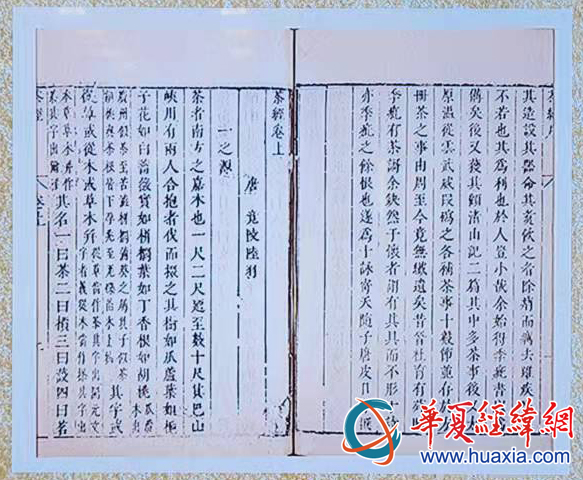 茶經序
其造設其器命其煑飲之者除痟而癘去雖疾
不若也其為利也於人豈小哉余始得季疵書
備矣後又獲其顧渚山記二篇其中多茶事後又太
原溫從雲武威段磶之各補茶事十數節並存
冊茶之事由周至今竟無纎遺矣昔晉杜育有荈
季疵有茶歌余缺然于懷者謂有其具而不形于
亦季疵之餘恨也遂為十詠寄天隨子唐皮日休
茶經卷上
唐 竟陵陸羽
一之源
茶者南方之嘉木也一尺二尺廼至數十尺其巴山
峽川有兩人合抱者伐而掇之其樹如瓜蘆葉如梔
子花如白薔薇實如栟櫚葉如丁香根如胡桃 瓜蘆木
廣州似茶至苦澀栟櫚蒲葵之屬其子似茶
胡桃與茶根皆下孕兆至瓦礫苗木上抽 其字或
從草或從木或草木并 從草當作茶其字出開元文
字音義從木當作搽其字出
本草草木并作荼其字出爾雅 其名一曰茶二曰檟三曰蔎四曰茗
茶經 卷上
華夏經緯網
www.huaxia.com